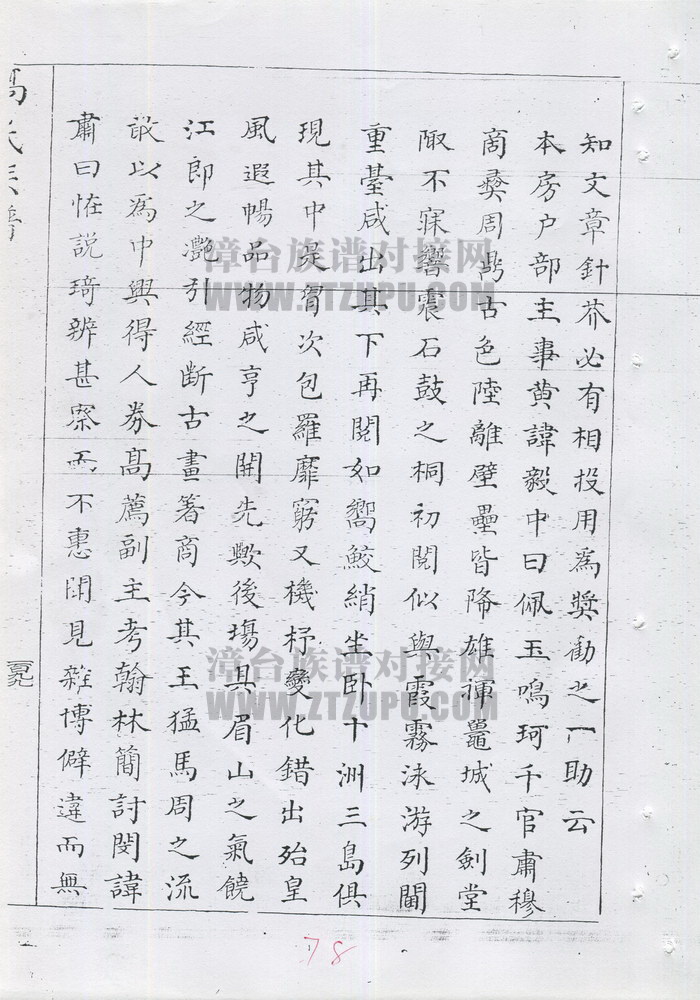 知文章針芥必有相投用為獎勸之一助云
本房户部主事黄諱毅中曰佩玉鳴珂千官肅穆
商彝周鼎古色陸離壁壘皆降雄禈城之劍堂
陬不寐響震石鼓之桐初閱似與霞霧泳游列閫
重臺咸出其下再閱如嚮鮫綃坐卧十洲三島俱
現其中是胷次包羅靡窮又機杼變化錯出殆皇
風遐暢品物咸亨之開先歟後塲具眉山之氣饒
江郎之灔引經斷古畫箸商今其王猛馬周之流
敢以為中興得人券髙薦副主考翰林簡討閔諱
肅曰恠説琦辨甚察而不惠閗見雜博僻違而無
馮氏族譜
78
漳台族谱对接网
WWW.ZTZUPU.COM
漳台族谱对接网
WWW.ZTZUPU.COM